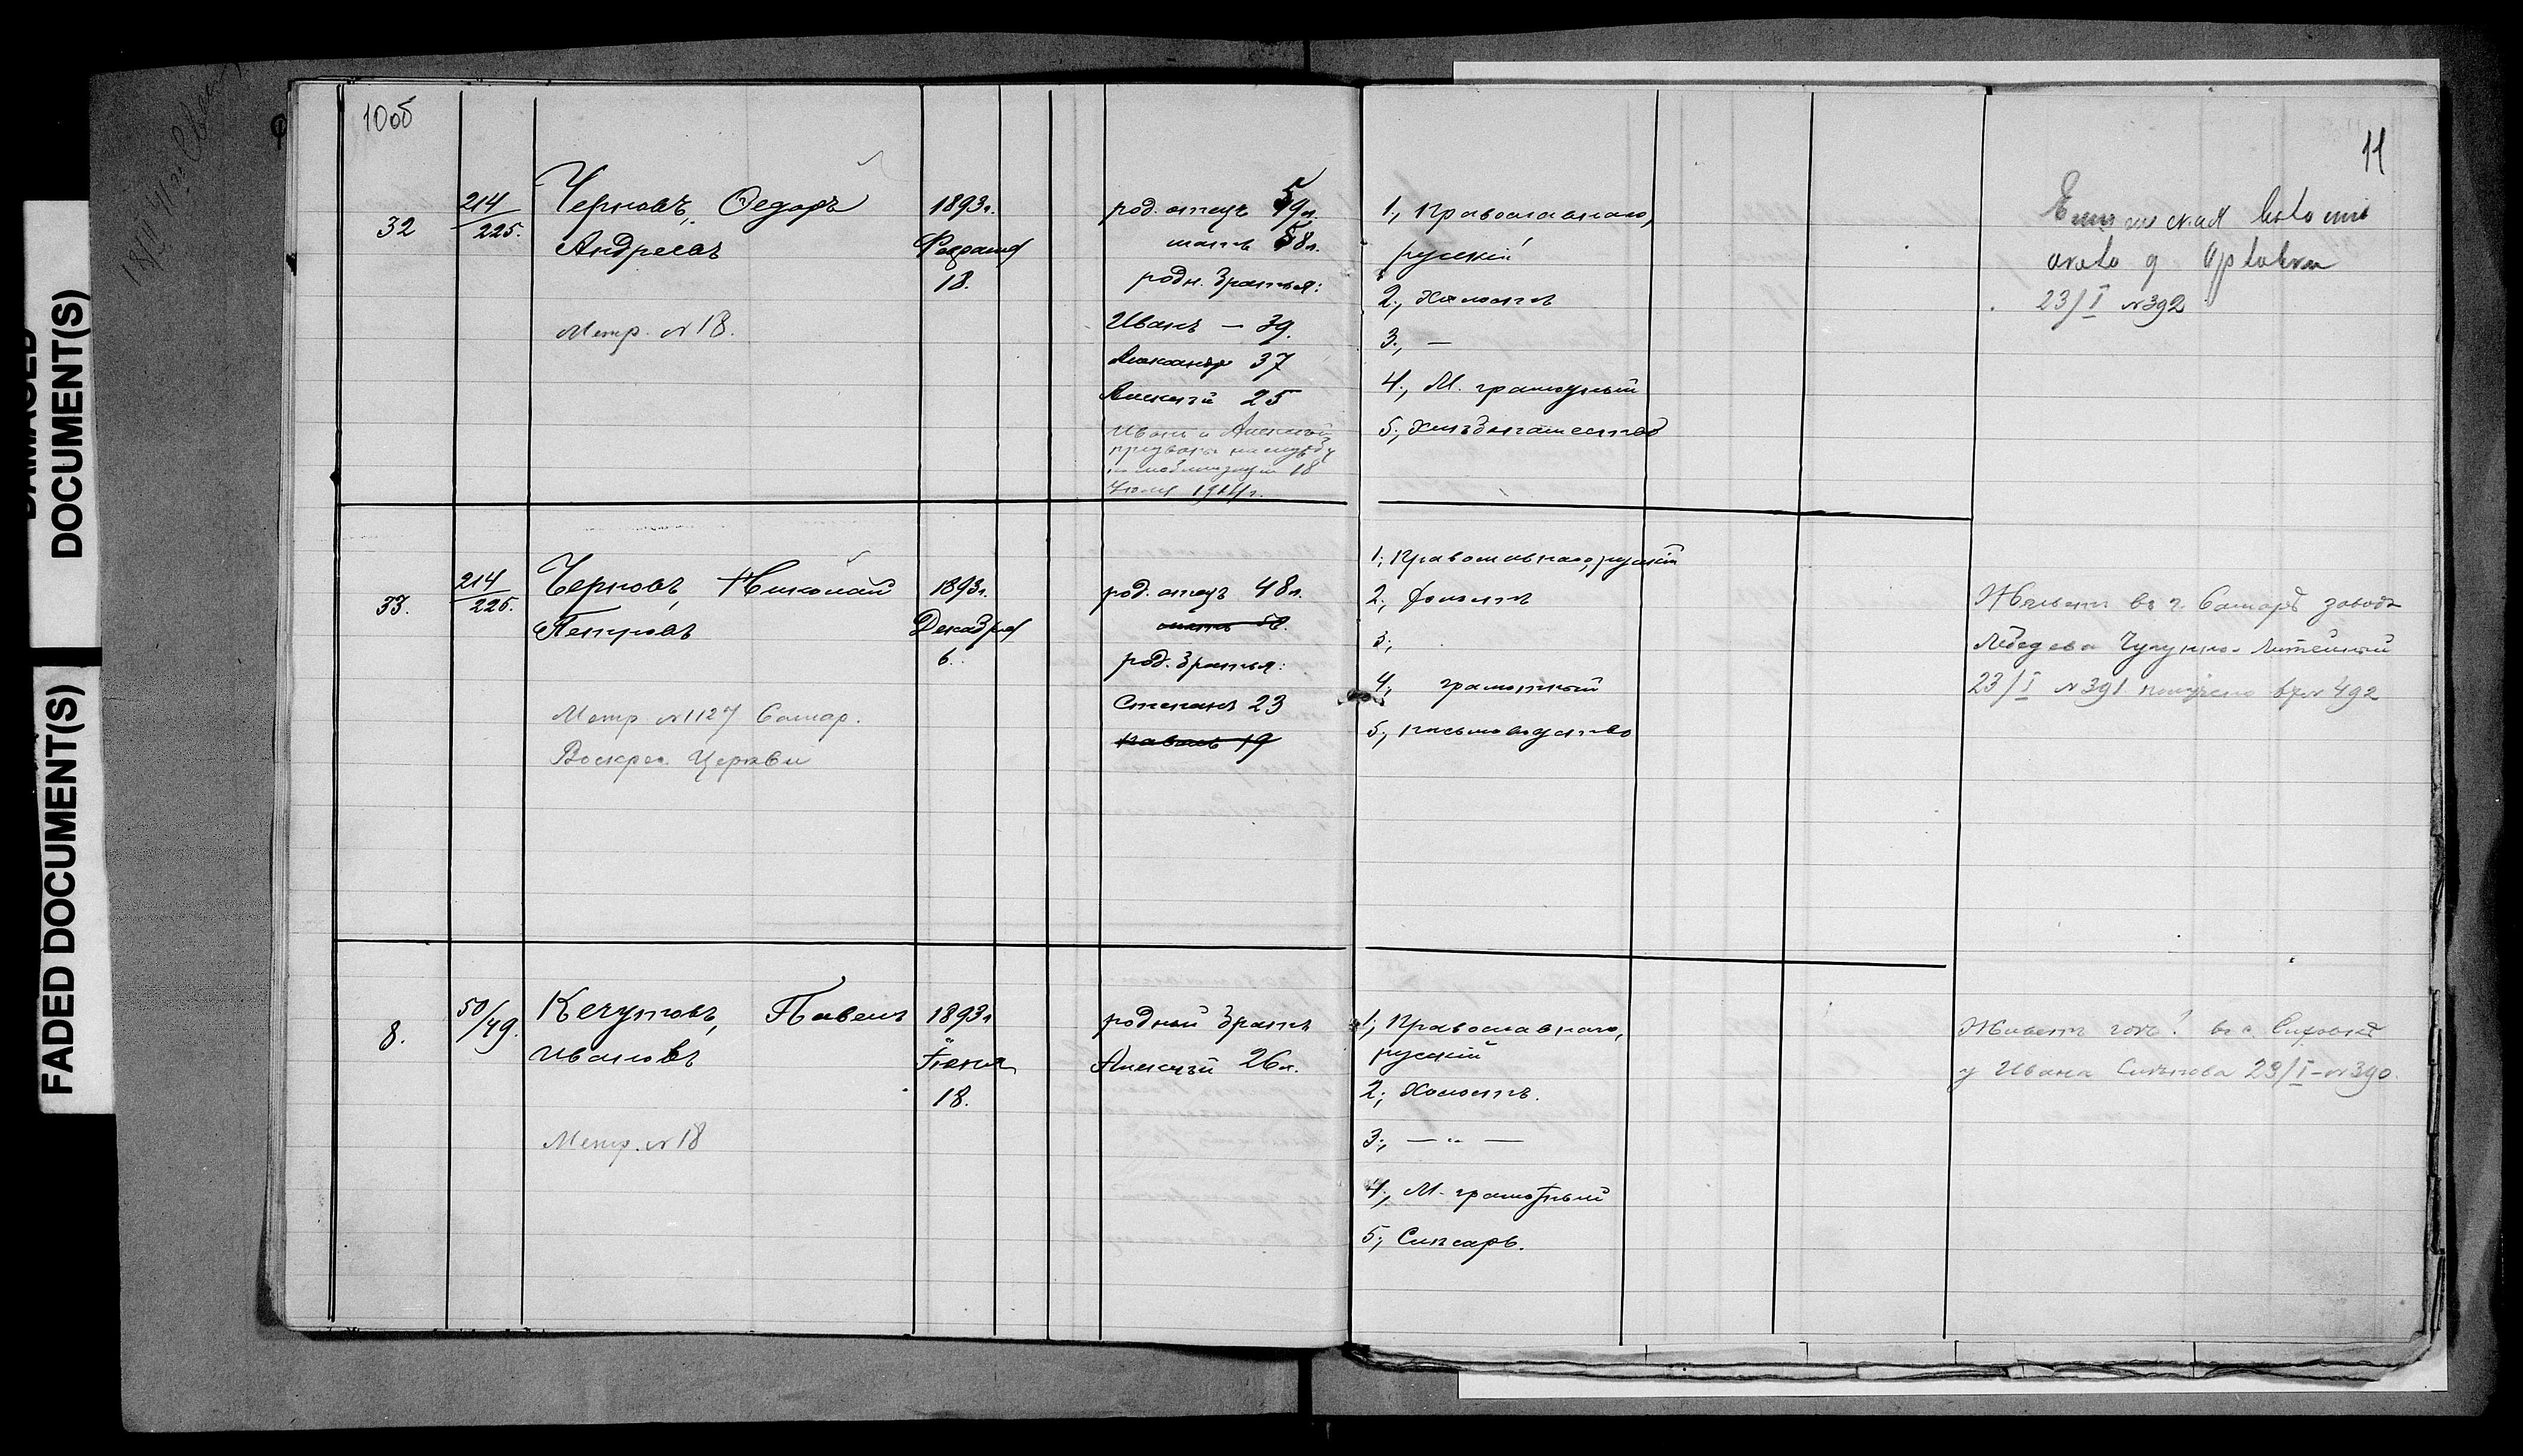 DAMAGED
DOCUMENT(S)
FADED DOCUMENT(S)
10об
11
32
214/225.
Черновъ, Федоръ
Андреевъ
Метр. №18.
1893г.
Февраля
18.
род. отецъ 59л.
мать 58л.
родн. братья:
Иванъ — 39.
Александр 37
Алексѣй 25
Иванъ и Алексѣй
призваны на службу
по мобилизации 18
Июля 1914г.
1, Православнаго,
русскій
2, Холостъ
3, —
4, М. грамотный
5, Хлѣбопашество
23/I №392
33.
214/225.
Черновъ, Николай
Петровъ
Метр. №1127 Самар.
Воскрес. Церкви
1893г.
Декабря
6.
род. отецъ 48л.
мать 58.
род. братья:
Степанъ 23
Павелъ 19
1, Православнаго, русскій
2, Холостъ
3,
4, грамотный
5, письмоводство
Живетъ въ г. Самарѣ заводъ
Лебедева Чугунно-Литейный
23/I №391 получено вх № 492
8.
50/49.
Кечутовъ, Павелъ
Ивановъ
Метр. №18
1893г
Іюня
18.
родной братъ
Алексѣй 26л.
1, Православнаго,
русскій
2, Холостъ.
3, — „ —
4, М. грамотный
5, Слесарь.
Живетъ въ с.
у Ивана 23/I - №390.